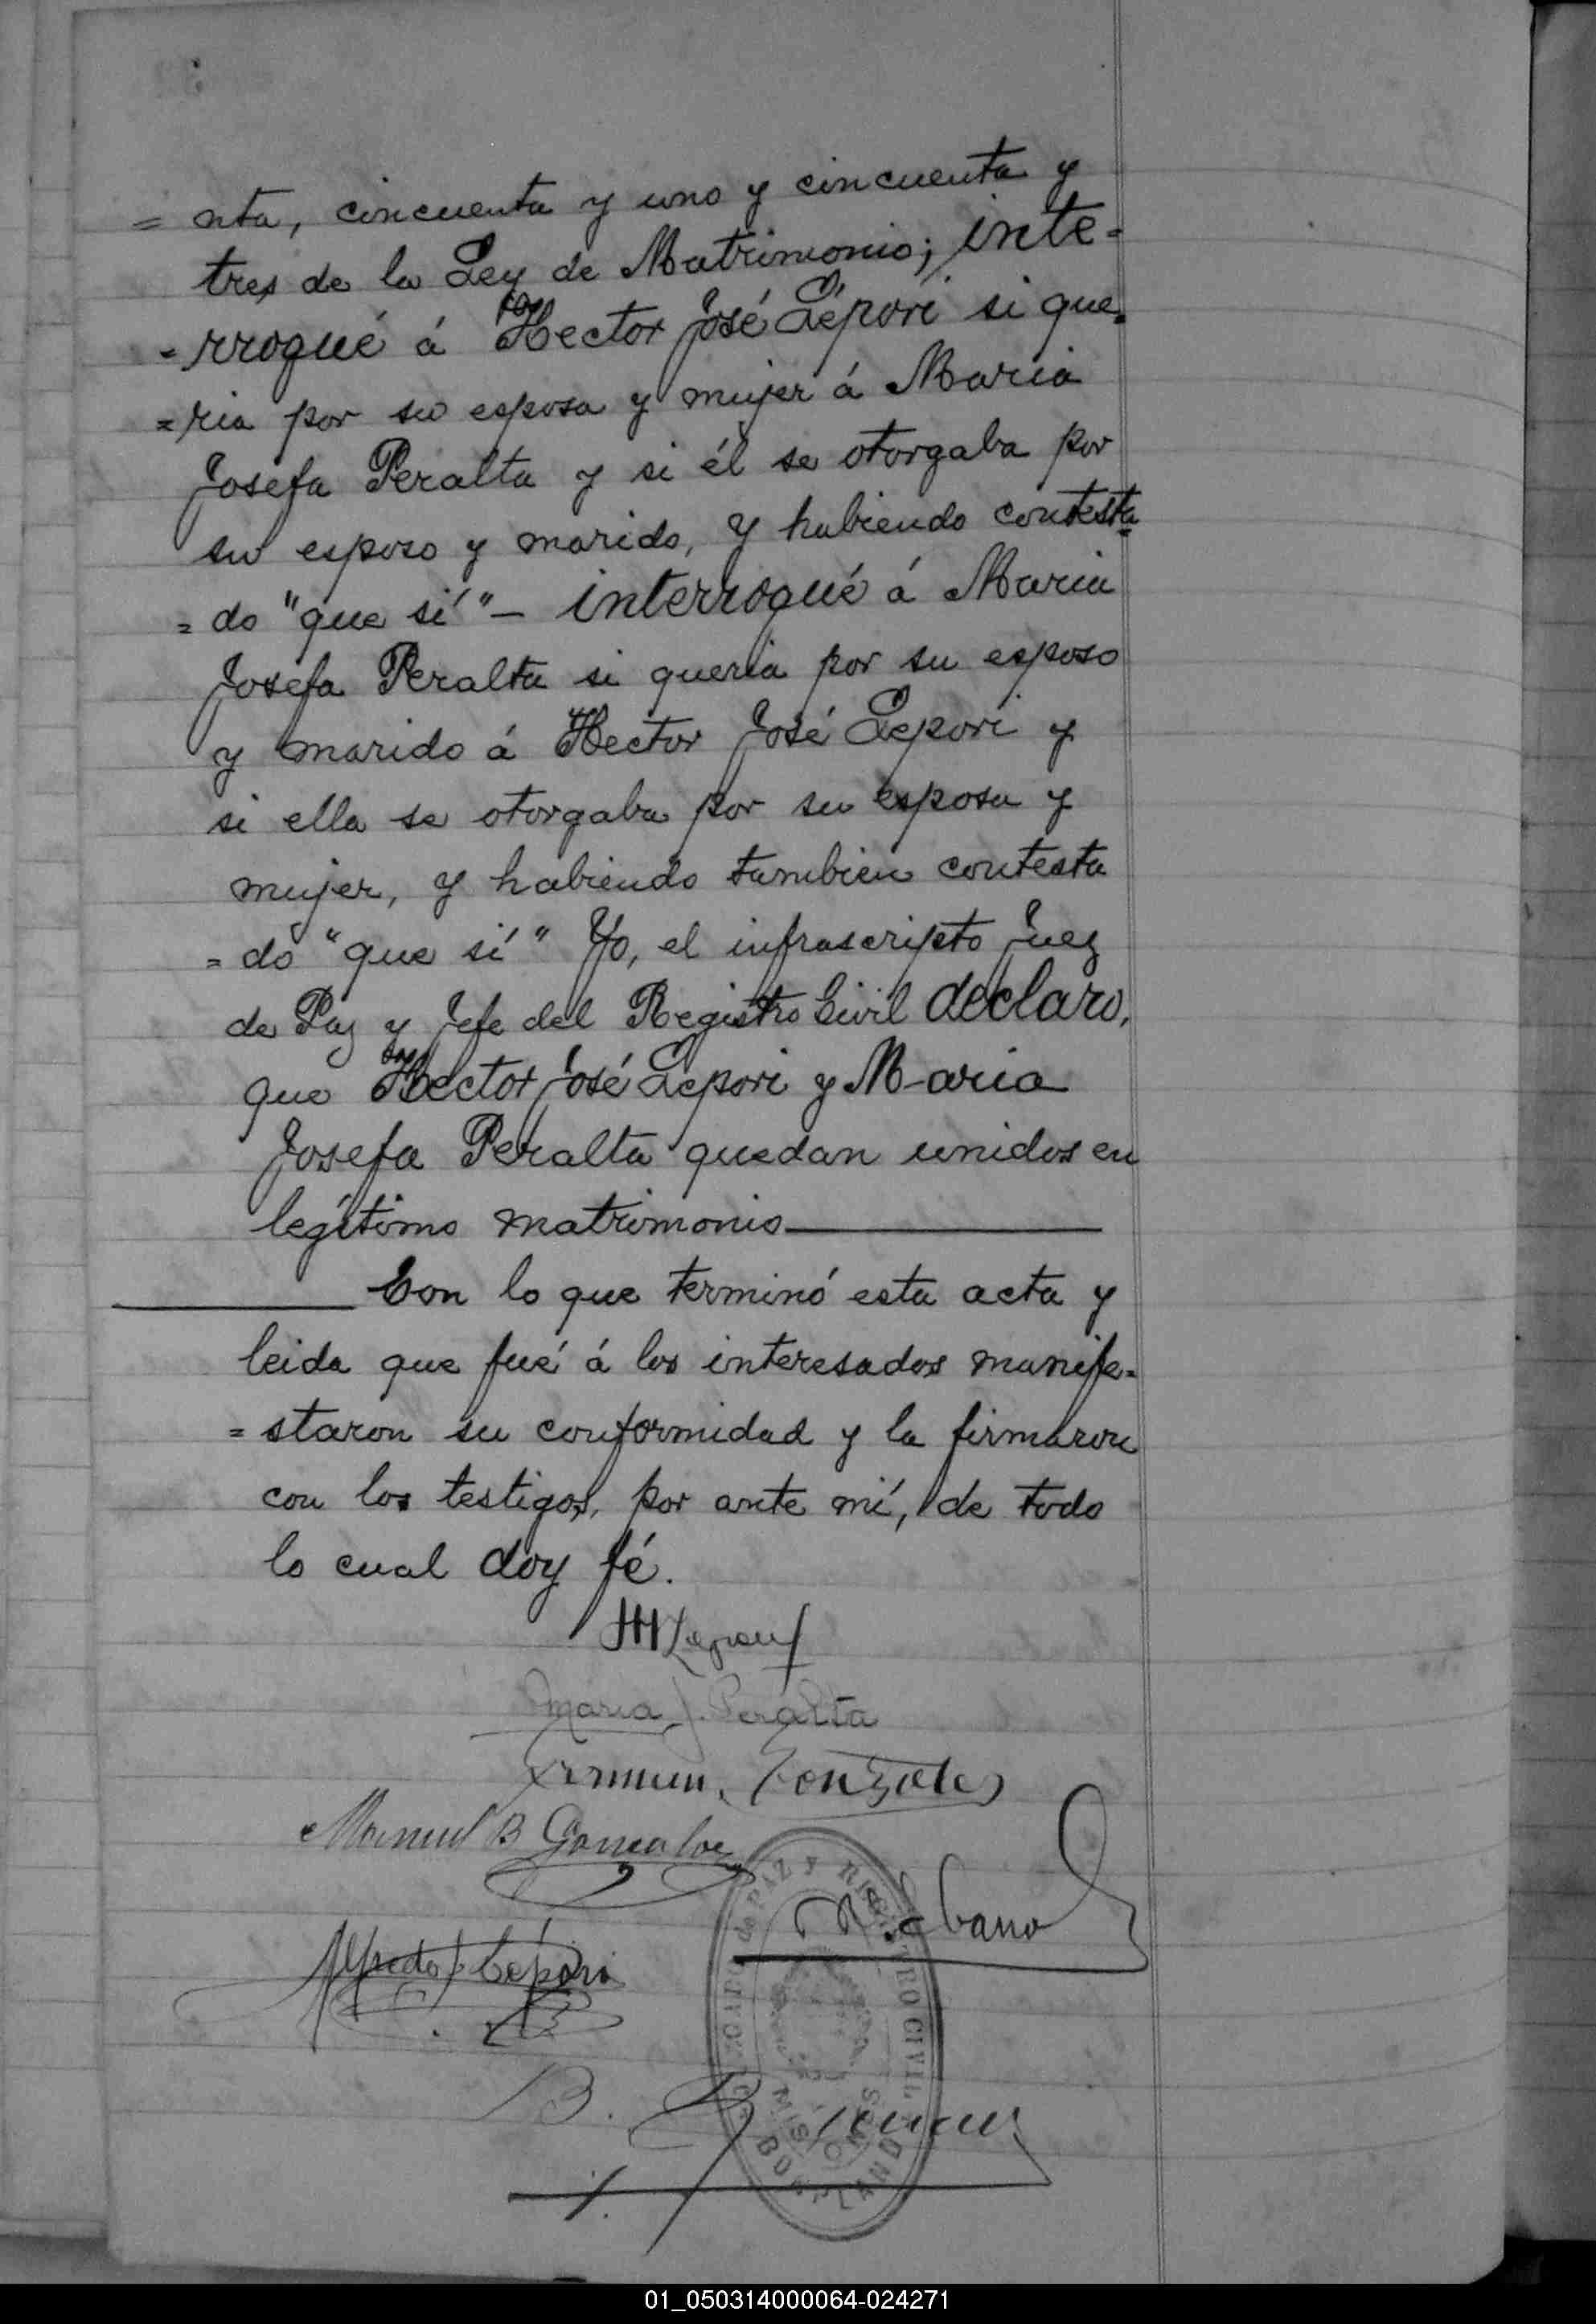 = nta, cincuenta y uno y cincuenta y
tres de la Ley de Matrimonio; inte=
=rrogué á Hector José Lépori si que=
=ria por su esposa y mujer á Maria
Josefa Peralta y si él se otorgaba por
su esposo y marido, y habiendo contesta=
= do "que sí" — interrogué á Maria
Josefa Peralta si queria por su esposo
y marido á Hector José Lepori y
si ella se otorgaba por su esposa y
mujer, y habiendo tambien contesta
= do "que sí" Yo, el infrascripto Juez
de Paz y Jefe del Registro Civil declaro,
que Hector José Lepori y Maria
Josefa Peralta quedan unidos en
legítimo matrimonio
Con lo que terminó esta acta y
leida que fué á los interesados manife=
= staron su conformidad y la firmaron
con los testigos, por ante mí, de todo
lo cual doy fé.
Maria J. Peralta
Gonzales
Manuel B Gonzalez
Alfredo Lépori
PAZ Y REGISTRO CIVIL
MISIONES
B.
01_050314000064-024271